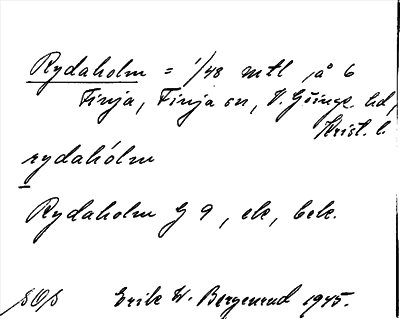 Rydaholm = 1/48 mtl, å 6
Finja, Finja sn, V. Göinge hd,
Krist. l.
rydahólm
Rydaholm G 9, ek, bek.
SOS Erik W. Bergenrud 1945.